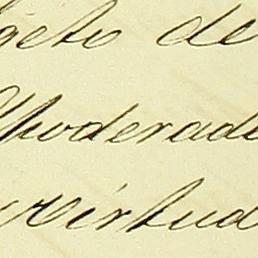 geto de
Apoderado
virtud